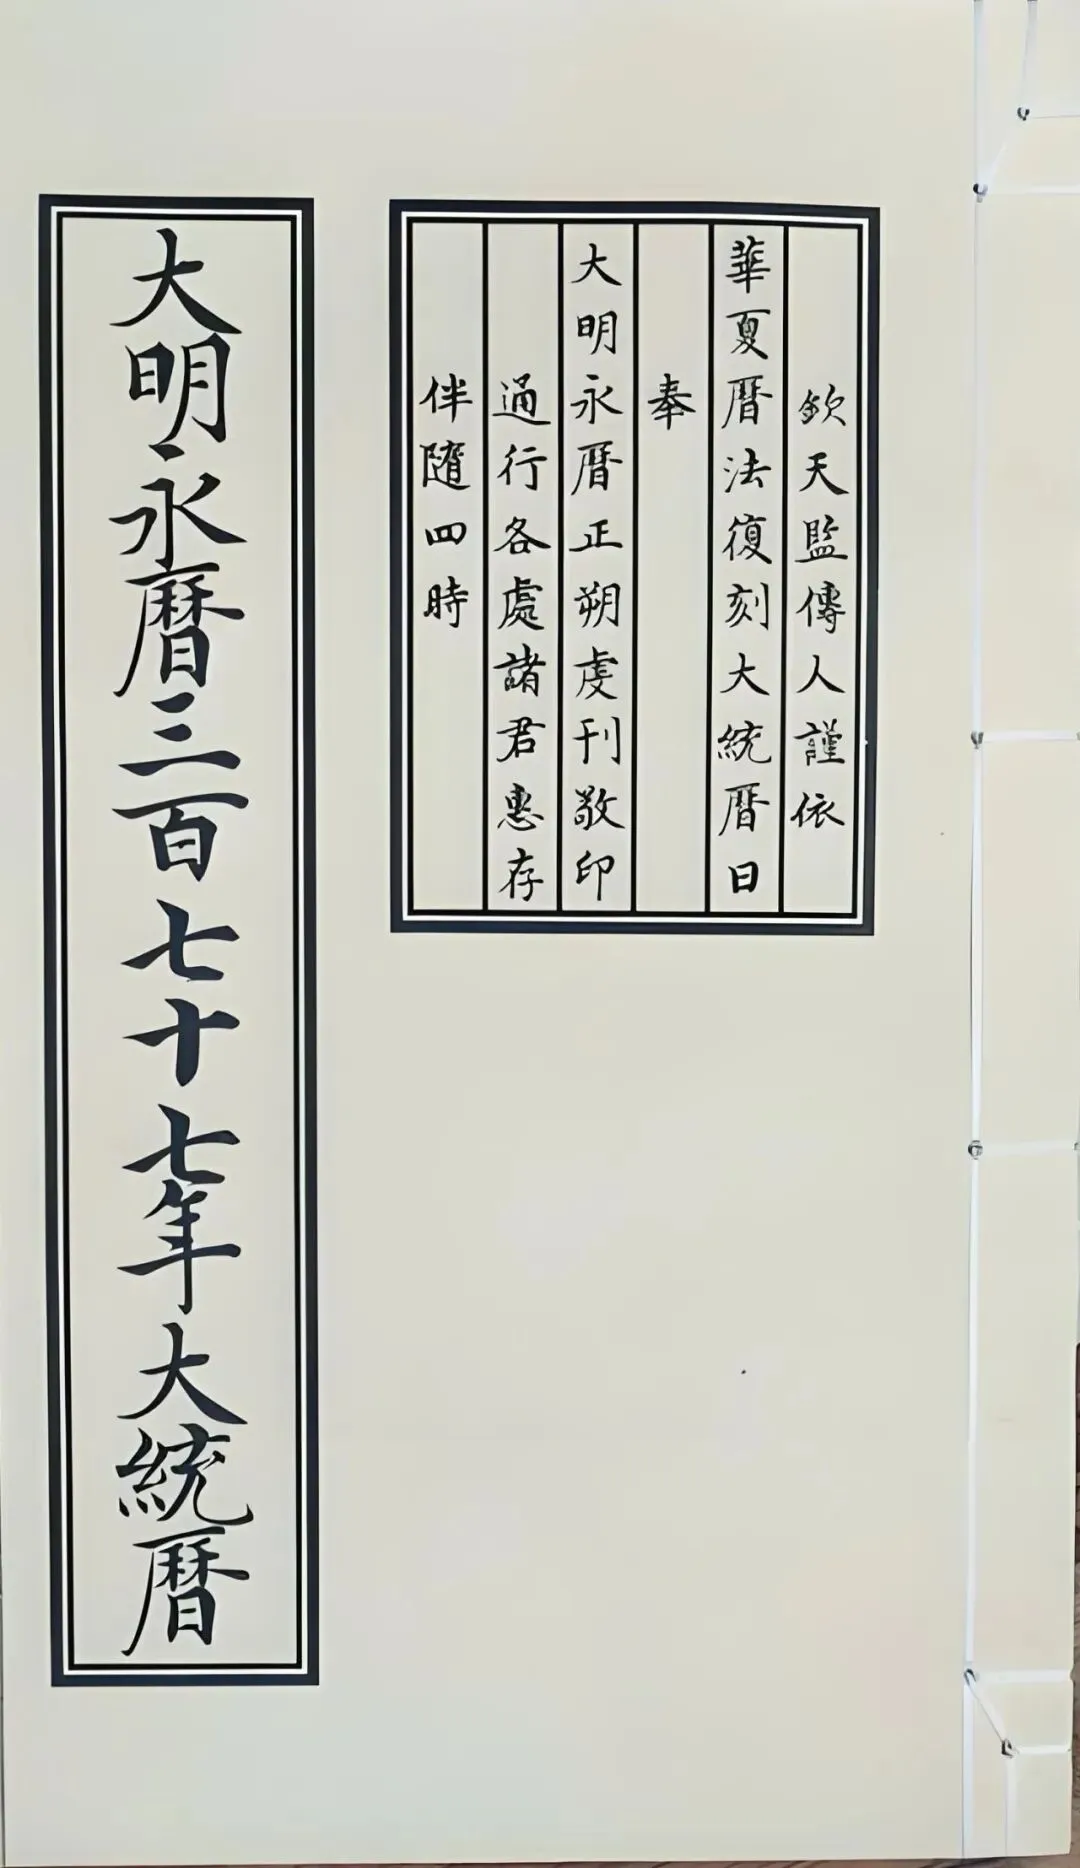 欽天監傳人謹依
華夏曆法復刻大統曆日
奉
大明永曆正朔虔刊敬印
通行各處諸君惠存
伴隨四時
大明永曆三百七十七年大統曆